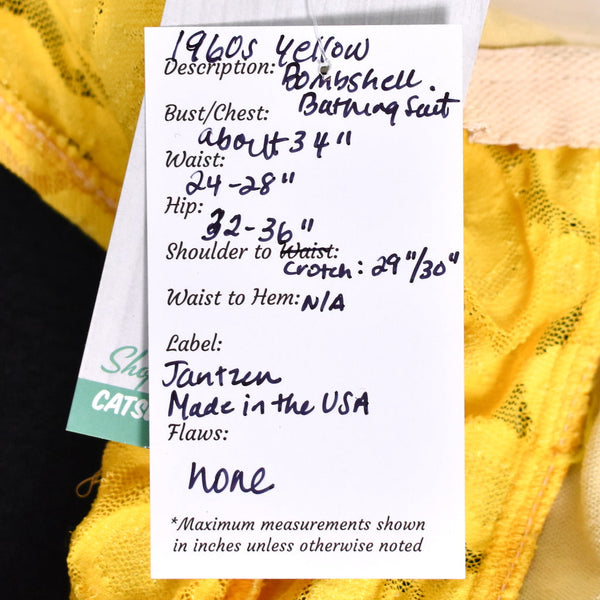 1960s Yellow
Description: Bombshell.
Bathing Suit
Bust/Chest:
about 34"
Waist:
24-28"
Hip:
32-36"
Shoulder to Waist:
Crotch: 29"/30"
Waist to Hem: N/A
Label:
Jantzen
Made in the USA
Flaws:
none
*Maximum measurements shown
in inches unless otherwise noted